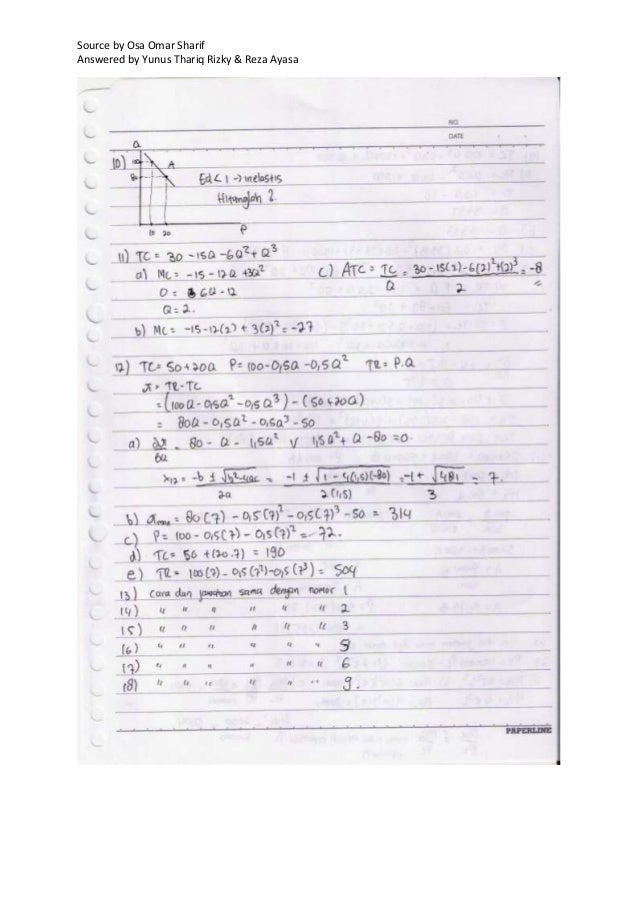 Source by Osa Omar Sharif
Answered by Yunus Thariq Rizky & Reza Ayasa
NO.
DATE
Q
10) 100 A
80 Ed < 1 → inelastis
Hitunglah 2.
10 20 P
11) TC = 30 - 15Q - 6Q² + Q³
a) MC = -15 - 12Q + 3Q² c) ATC = TC/Q = 30 - 15(2) - 6(2)² + (2)³ / 2 = -8
0 = 6Q - 12
Q = 2.
b) MC = -15 - 12(2) + 3(2)² = -27
12) TC = 50 + 20Q P = 100 - 0,5Q - 0,5Q² TR = P.Q
π = TR - TC
= (100Q - 0,5Q² - 0,5Q³) - (50 + 20Q)
= 80Q - 0,5Q² - 0,5Q³ - 50
a) = 80 - Q - 1,5Q² V 1,5Q² + Q - 80 = 0
x12 = -b ± √b²-4ac / 2a = -1 ± √1 - 4(1,5)(-80) / 2(1,5) = -1 + √481 / 3 = 7.
b) = 80(7) - 0,5(7)² - 0,5(7)³ - 50 = 314
c) P = 100 - 0,5(7) - 0,5(7)² = 72.
d) TC = 50 + (20.7) = 190
e) TR = 100(7) - 0,5(7²) - 0,5(7³) = 504
13) Cara dan jawaban sama dengan nomor 1
14) " " " " " " 2
15) " " " " " " 3
16) " " " " " " 5
17) " " " " " " 6
18) " " " " " " 9.
PAPERLINE